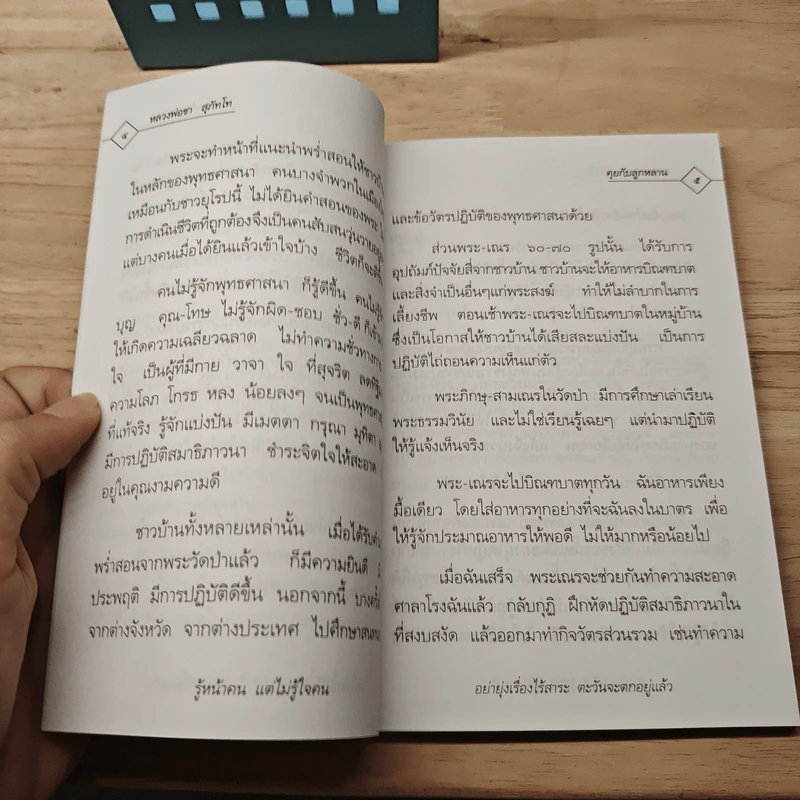 ๔ หลวงพ่อชา สุภัทโท
พระจะทำหน้าที่แนะนำพร่ำสอนให้ชาวบ้าน
ในหลักของพุทธศาสนา คนบางจำพวกในเมือง
เหมือนกับชาวยุโรปนี้ ไม่ได้ยินคำสอนของพระ
การดำเนินชีวิตที่ถูกต้องจึงเป็นคนสับสนวุ่นวาย
แต่บางคนเมื่อได้ยินแล้วเข้าใจบ้าง ชีวิตก็จะดี
คนไม่รู้จักพุทธศาสนา ก็รู้ดีขึ้น คนไม่รู้จัก
บุญ คุณ-โทษ ไม่รู้จักผิด-ชอบ ชั่ว-ดี ก็
ให้เกิดความเฉลียวฉลาด ไม่ทำความชั่วทาง
ใจ เป็นผู้ที่มีกาย วาจา ใจ ที่สุจริต ลด
ความโลภ โกรธ หลง น้อยลงๆ จนเป็นพุทธ
ที่แท้จริง รู้จักแบ่งปัน มีเมตตา กรุณา มุทิตา
มีการปฏิบัติสมาธิภาวนา ชำระจิตใจให้สะอาด
อยู่ในคุณงามความดี
ชาวบ้านทั้งหลายเหล่านั้น เมื่อได้รับ
พร่ำสอนจากพระวัดป่าแล้ว ก็มีความยินดี
ประพฤติ มีการปฏิบัติดีขึ้น นอกจากนี้ บางครั้ง
จากต่างจังหวัด จากต่างประเทศ ไปศึกษาสนทนา
รู้หน้าคน แต่ไม่รู้ใจคน
คุยกับลูกหลาน ๕
และข้อวัตรปฏิบัติของพุทธศาสนาด้วย
ส่วนพระ-เณร ๖๐-๗๐ รูปนั้น ได้รับการ
อุปถัมภ์ปัจจัยสี่จากชาวบ้าน ชาวบ้านจะให้อาหารบิณฑบาต
และสิ่งจำเป็นอื่นๆแก่พระสงฆ์ ทำให้ไม่ลำบากในการ
เลี้ยงชีพ ตอนเช้าพระ-เณรจะไปบิณฑบาตในหมู่บ้าน
ซึ่งเป็นโอกาสให้ชาวบ้านได้เสียสละแบ่งปัน เป็นการ
ปฏิบัติไถ่ถอนความเห็นแก่ตัว
พระภิกษุ-สามเณรในวัดป่า มีการศึกษาเล่าเรียน
พระธรรมวินัย และไม่ใช่เรียนรู้เฉยๆ แต่นำมาปฏิบัติ
ให้รู้แจ้งเห็นจริง
พระ-เณรจะไปบิณฑบาตทุกวัน ฉันอาหารเพียง
มื้อเดียว โดยใส่อาหารทุกอย่างที่จะฉันลงในบาตร เพื่อ
ให้รู้จักประมาณอาหารให้พอดี ไม่ให้มากหรือน้อยไป
เมื่อฉันเสร็จ พระเณรจะช่วยกันทำความสะอาด
ศาลาโรงฉันแล้ว กลับกุฏิ ฝึกหัดปฏิบัติสมาธิภาวนาใน
ที่สงบสงัด แล้วออกมาทำกิจวัตรส่วนรวม เช่นทำความ
อย่ายุ่งเรื่องไร้สาระ ตะวันจะตกอยู่แล้ว